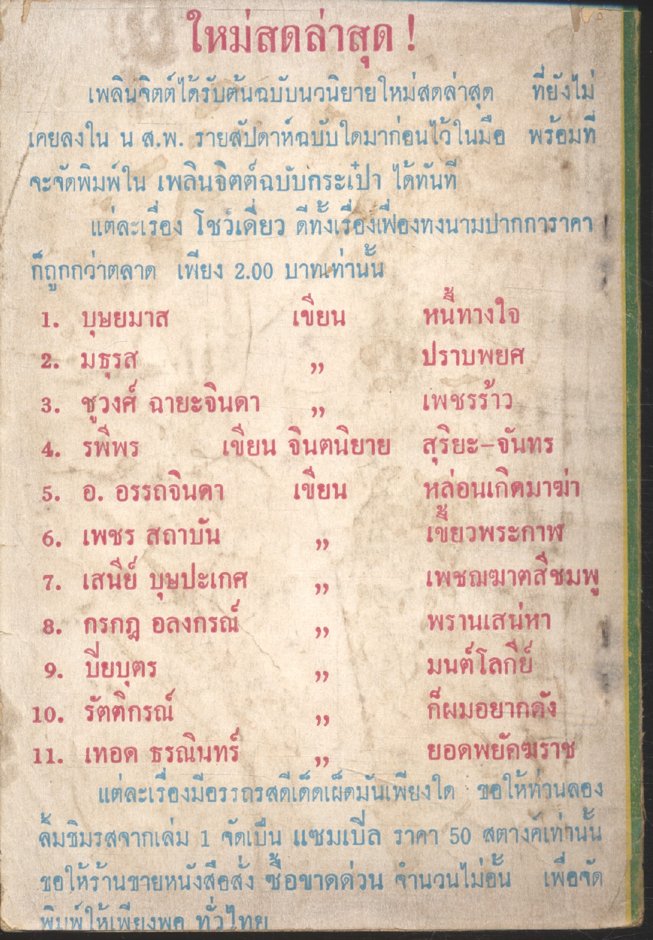 ใหม่สดล่าสุด !
เพลินจิตต์ได้รับต้นฉบับนวนิยายใหม่สดล่าสุด ที่ยังไม่
เคยลงใน น ส.พ. รายสัปดาห์ฉบับใดมาก่อนไว้ในมือ พร้อมที่
จะจัดพิมพ์ใน เพลินจิตต์ฉบับกระเป๋า ได้ทันที
แต่ละเรื่อง โชว์เดี่ยว ดีทั้งเรื่องเฟื่องทงนามปากการาคา
ก็ถูกกว่าตลาด เพียง 2.00 บาทเท่านั้น
1. บุษยมาส เขียน หนี้ทางใจ
2. มธุรส ,, ปราบพยศ
3. ชูวงศ์ ฉายะจินดา ,, เพชรร้าว
4. รพีพร เขียน จินตนิยาย สุริยะ-จันทร
5. อ. อรรถจินดา เขียน หล่อนเกิดมาฆ่า
6. เพชร สถาบัน ,, เขี้ยวพระกาฬ
7. เสนีย์ บุษปะเกศ ,, เพชฌฆาตสีชมพู
8. กรกฎ อลงกรณ์ ,, พรานเสน่หา
9. บียบุตร ,, มนต์โลกีย์
10. รัตติกรณ์ ,, ก็ผมอยากดัง
11. เทอด ธรณินทร์ ,, ยอดพยัคฆราช
แต่ละเรื่องมีอรรถรสดีเด็ดเผ็ดมันเพียงใด ขอให้ท่านลอง
ลิ้มชิมรสจากเล่ม 1 จัดเป็น แซมเปิ้ล ราคา 50 สตางค์เท่านั้น
ขอให้ร้านขายหนังสือสั่ง ซื้อขาดด่วน จำนวนไม่อั้น เพื่อจัด
พิมพ์ให้เพียงพอ ทั่วไทย